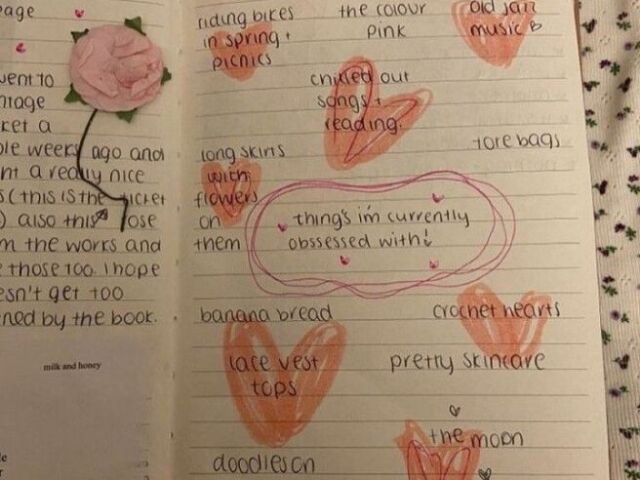 went to
ket a
ple weeks ago and
nt a really nice
s (this is the ticket
) also this rose
m the works and
e those too. I hope
esn't get too
ned by the book.
milk and honey
riding bikes
in spring +
picnics
the colour
pink
old jazz
music
chilled out
songs +
reading.
tote bags
long skirts
with
flowers
on
them
thing's i'm currently
obssessed with!
banana bread
crochet hearts
lace vest
tops
pretty skincare
the moon
doodles on